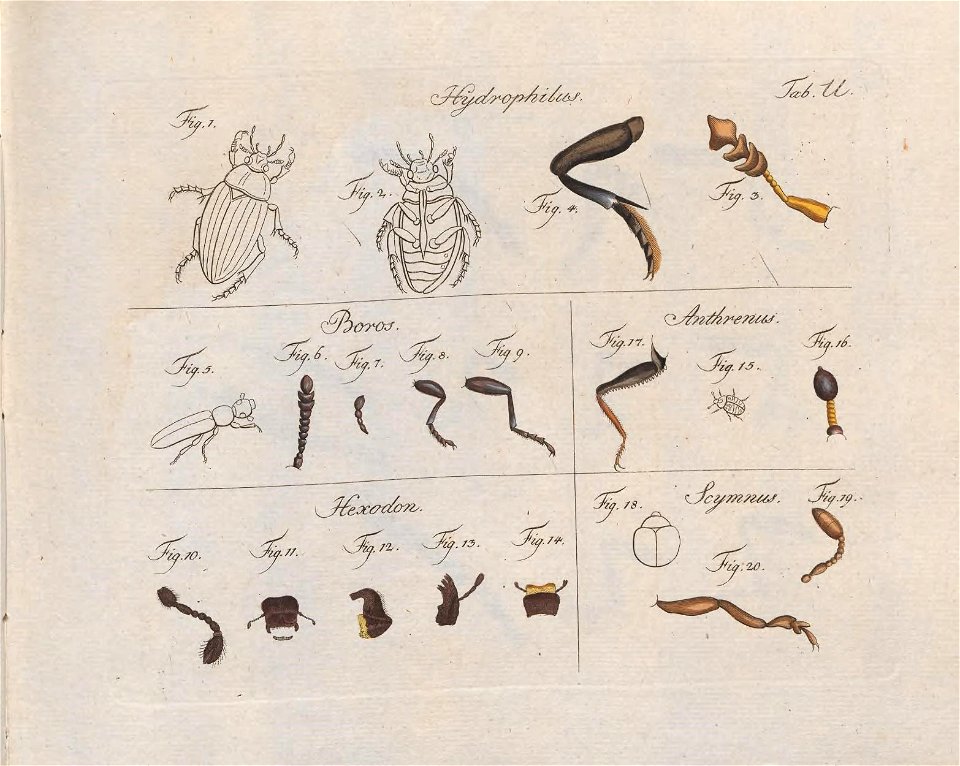 Hydrophilus. Tab. U.
Fig. 1.
Fig. 2.
Fig. 4.
Fig. 3.
Boros.
Fig. 5.
Fig. 6.
Fig. 7.
Fig. 8.
Fig. 9.
Anthrenus.
Fig. 17.
Fig. 15.
Fig. 16.
Hexodon.
Fig. 10.
Fig. 11.
Fig. 12.
Fig. 13.
Fig. 14.
Scymnus.
Fig. 18.
Fig. 19.
Fig. 20.